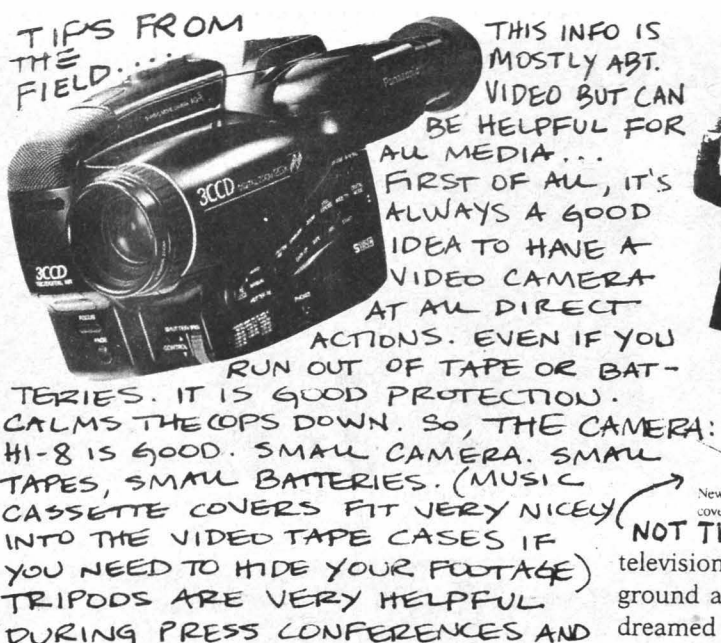 TIPS FROM
THE
FIELD....
THIS INFO IS
MOSTLY ABT.
VIDEO BUT CAN
BE HELPFUL FOR
ALL MEDIA...
FIRST OF ALL, IT'S
ALWAYS A GOOD
IDEA TO HAVE A
VIDEO CAMERA
AT ALL DIRECT
ACTIONS. EVEN IF YOU
RUN OUT OF TAPE OR BAT-
TERIES. IT IS GOOD PROTECTION.
CALMS THE COPS DOWN. SO, THE CAMERA:
HI-8 IS GOOD. SMALL CAMERA. SMALL
TAPES, SMALL BATTERIES. (MUSIC
CASSETTE COVERS FIT VERY NICELY
INTO THE VIDEO TAPE CASES IF
YOU NEED TO HIDE YOUR FOOTAGE)
TRIPODS ARE VERY HELPFUL
DURING PRESS CONFERENCES AND
Panasonic
3CCD
3CCD
FOCUS
FADE
New
cove
NOT
television
ground a
dreamed